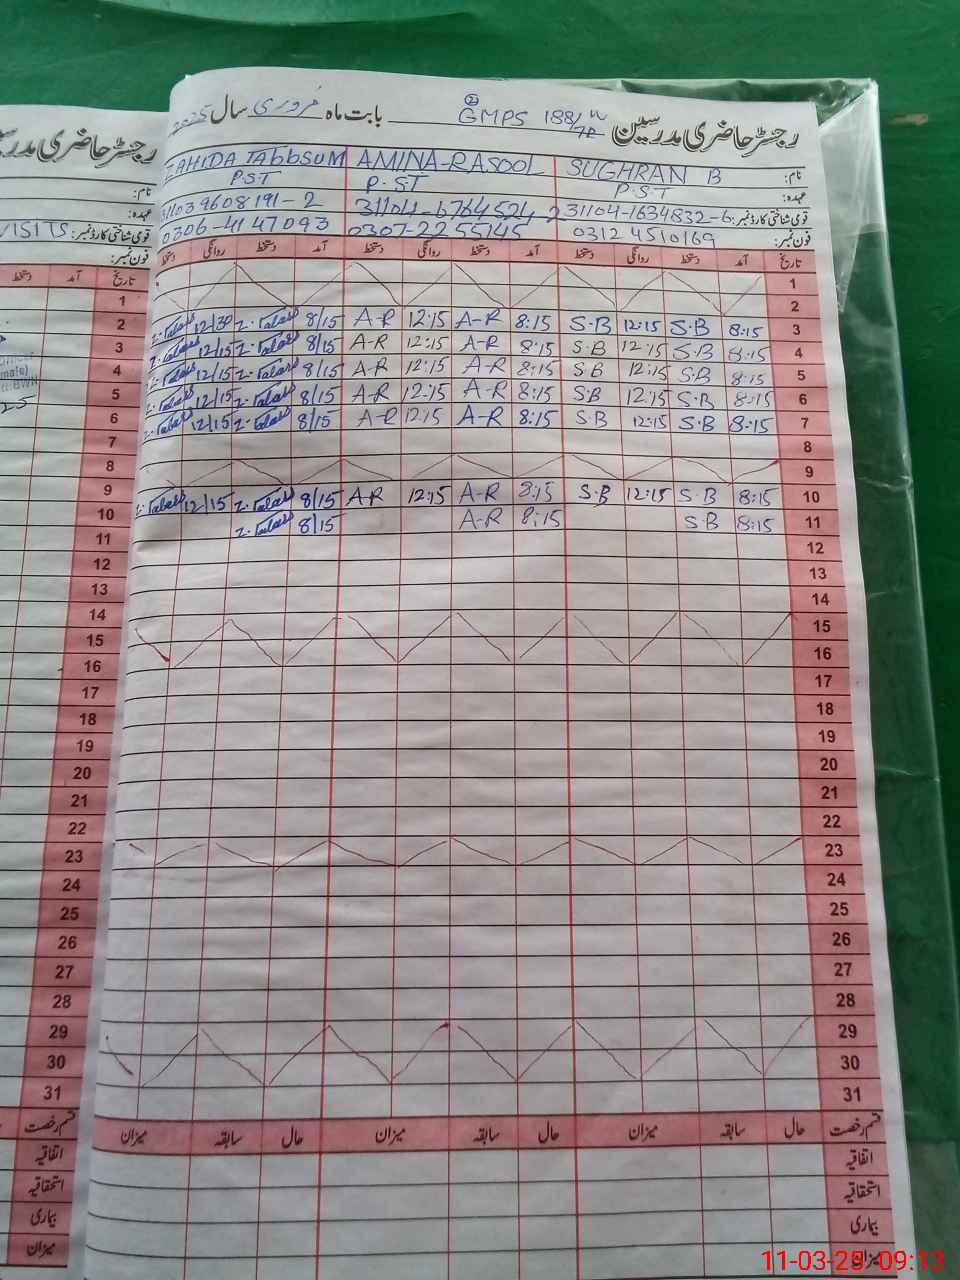 رجسٹر حاضری مدرسین GMPS 188/ بابت ماہ فروری سال 2025
نام: SUGHRAN B AMINA-RASOOL ZAHIDA TABBSUM
عہدہ: P.S.T P.S.T P.S.T
قومی شناختی کارڈ نمبر: 31104-1634832-6 31104-6764524-2 311039608191-2
فون نمبر: 0312 4510169 0307-2255145 0306-4147093
تاریخ آمد دستخط روانگی دستخط آمد دستخط روانگی دستخط آمد دستخط روانگی دستخط
1
2
3 8:15 S.B 12:15 S.B 8:15 A-R 12:15 A-R 8/15 12/30
4 8:15 S.B 12:15 S.B 8:15 A-R 12:15 A-R 8/15 12/15
5 8:15 S.B 12:15 S.B 8:15 A-R 12:15 A-R 8/15 12/15
6 8:15 S.B 12:15 S.B 8:15 A-R 12:15 A-R 8/15 12/15
7 8:15 S.B 12:15 S.B 8:15 A-R 12:15 A-R 8/15 12/15
8
9
10 8:15 S.B 12:15 S.B 8:15 A-R 12:15 A-R 8/15 12/15
11 8:15 S.B 8:15 A-R 8/15
12
13
14
15
16
17
18
19
20
21
22
23
24
25
26
27
28
29
30
31
قسم رخصت حال سابقہ میزان حال سابقہ میزان حال سابقہ میزان
اتفاقیہ
استحقاقیہ
بیماری
میزان
رجسٹر حاضری
نام:
عہدہ:
قومی شناختی کارڈ نمبر: VISITS
فون نمبر:
تاریخ آمد دستخط
1
2
3
4
5
6
7
8
9
10
11
12
13
14
15
16
17
18
19
20
21
22
23
24
25
26
27
28
29
30
31
قسم رخصت
اتفاقیہ
استحقاقیہ
بیماری
میزان
11-03-25 09:13